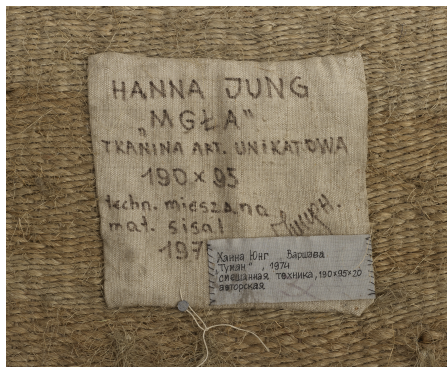 HANNA JUNG
„MGŁA"
TKANINA ART. UNIKATOWA
190 x 95
techn. mieszana
mat. sisal
197
Ханна Юнг Варшава
Туман" , 1974
смешанная техника, 190×95×20
авторская